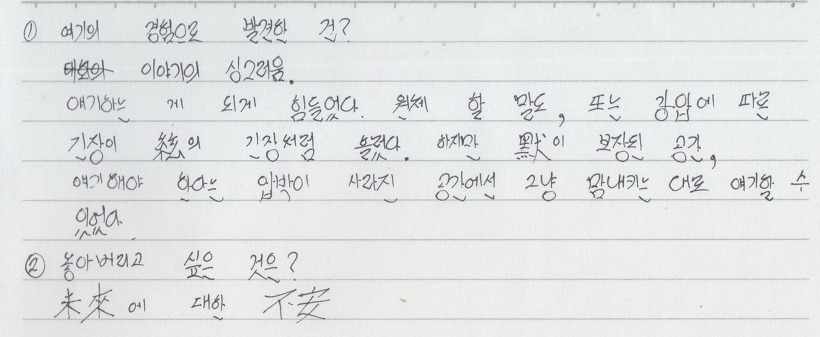 ① 여기의 경험으로 발견한 건?
이야기의 싱그러움.
얘기하는 게 되게 힘들었다. 원체 할 말도, 또는 강압에 따른
긴장이 絃의 긴장처럼 흘렀다. 하지만 默이 보장된 공간,
얘기해야 한다는 압박이 사라진 공간에선 그냥 맘내키는 대로 얘기할 수
있었다.
② 놓아버리고 싶은 것은?
未來에 대한 不安